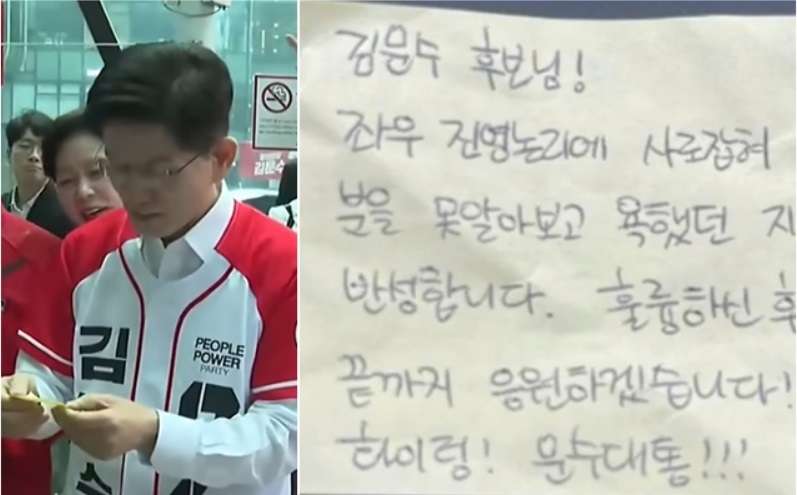 김문수
PEOPLE
POWER
PARTY
김
수
김문수 후보님!
좌우 진영논리에 사로잡혀
분을 못알아보고 욕했던 지
반성합니다. 훌륭하신 후
끝까지 응원하겠습니다!
화이팅! 문수대통!!!